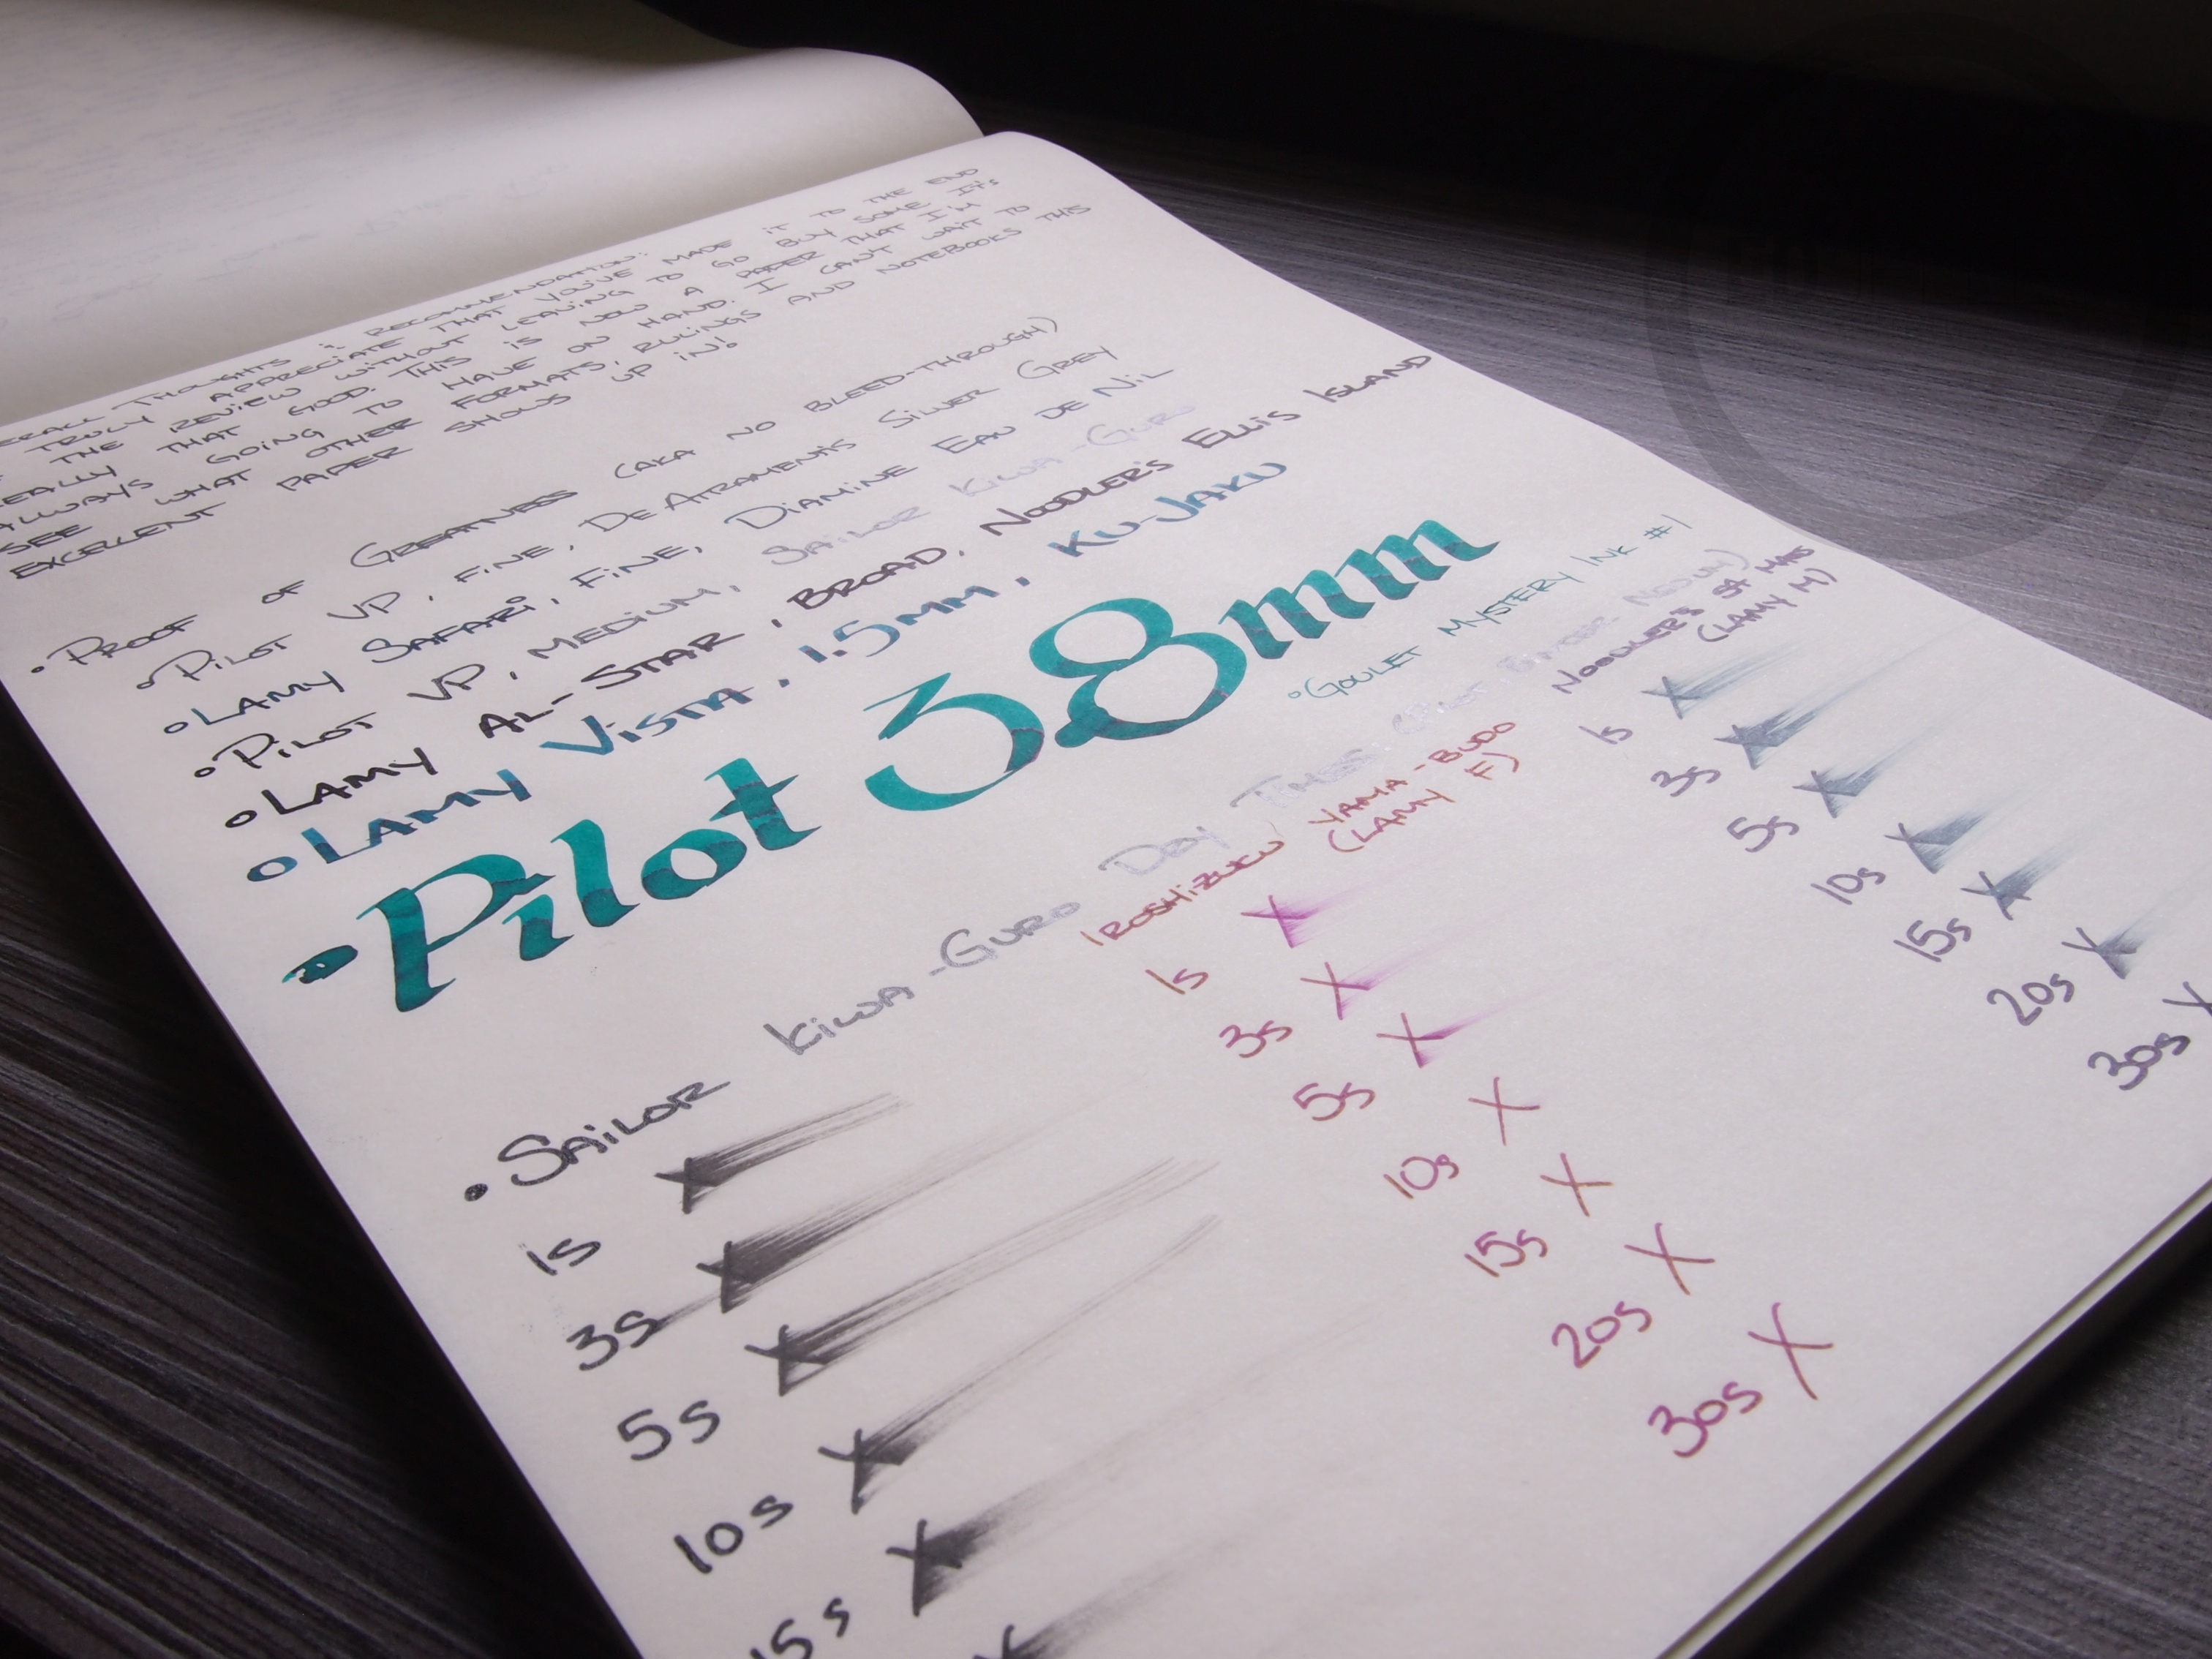 THOUGHTS & RECOMMENDATION:
TRULY APPRECIATE THAT YOU'VE MADE IT TO THE END
THE REVIEW WITHOUT LEAVING TO GO BUY SOME IT'S
REALLY THAT GOOD. THIS IS NOW A PAPER THAT I'M
ALWAYS GOING TO HAVE ON HAND. I CAN'T WAIT TO
SEE WHAT OTHER FORMATS, RULINGS AND NOTEBOOKS THIS
EXCELLENT PAPER SHOWS UP IN!
• PROOF OF GREATNESS (AKA NO BLEED-THROUGH)
○ PILOT VP, FINE, DE ATRAMENTIS SILVER GREY
○ LAMY SAFARI, FINE, DIAMINE EAU DE NIL
○ PILOT VP, MEDIUM, SAILOR KIWA-GURO
○ LAMY AL-STAR, BROAD, NOODLER'S ELLIS ISLAND
○ LAMY VISTA, 1.5MM, KU-JAKU
• Pilot 3.8mm
○ GOULET MYSTERY INK #1
DRY TIMES
• SAILOR KIWA-GURO
1s X
3s X
5s X
10s X
15s X
IROSHIZUKU YAMA-BUDO
(LAMY F)
1s X
3s X
5s X
10s X
15s X
20s X
30s X
NOODLER'S
(LAMY M)
1s X
3s X
5s X
10s X
15s X
20s X
30s X